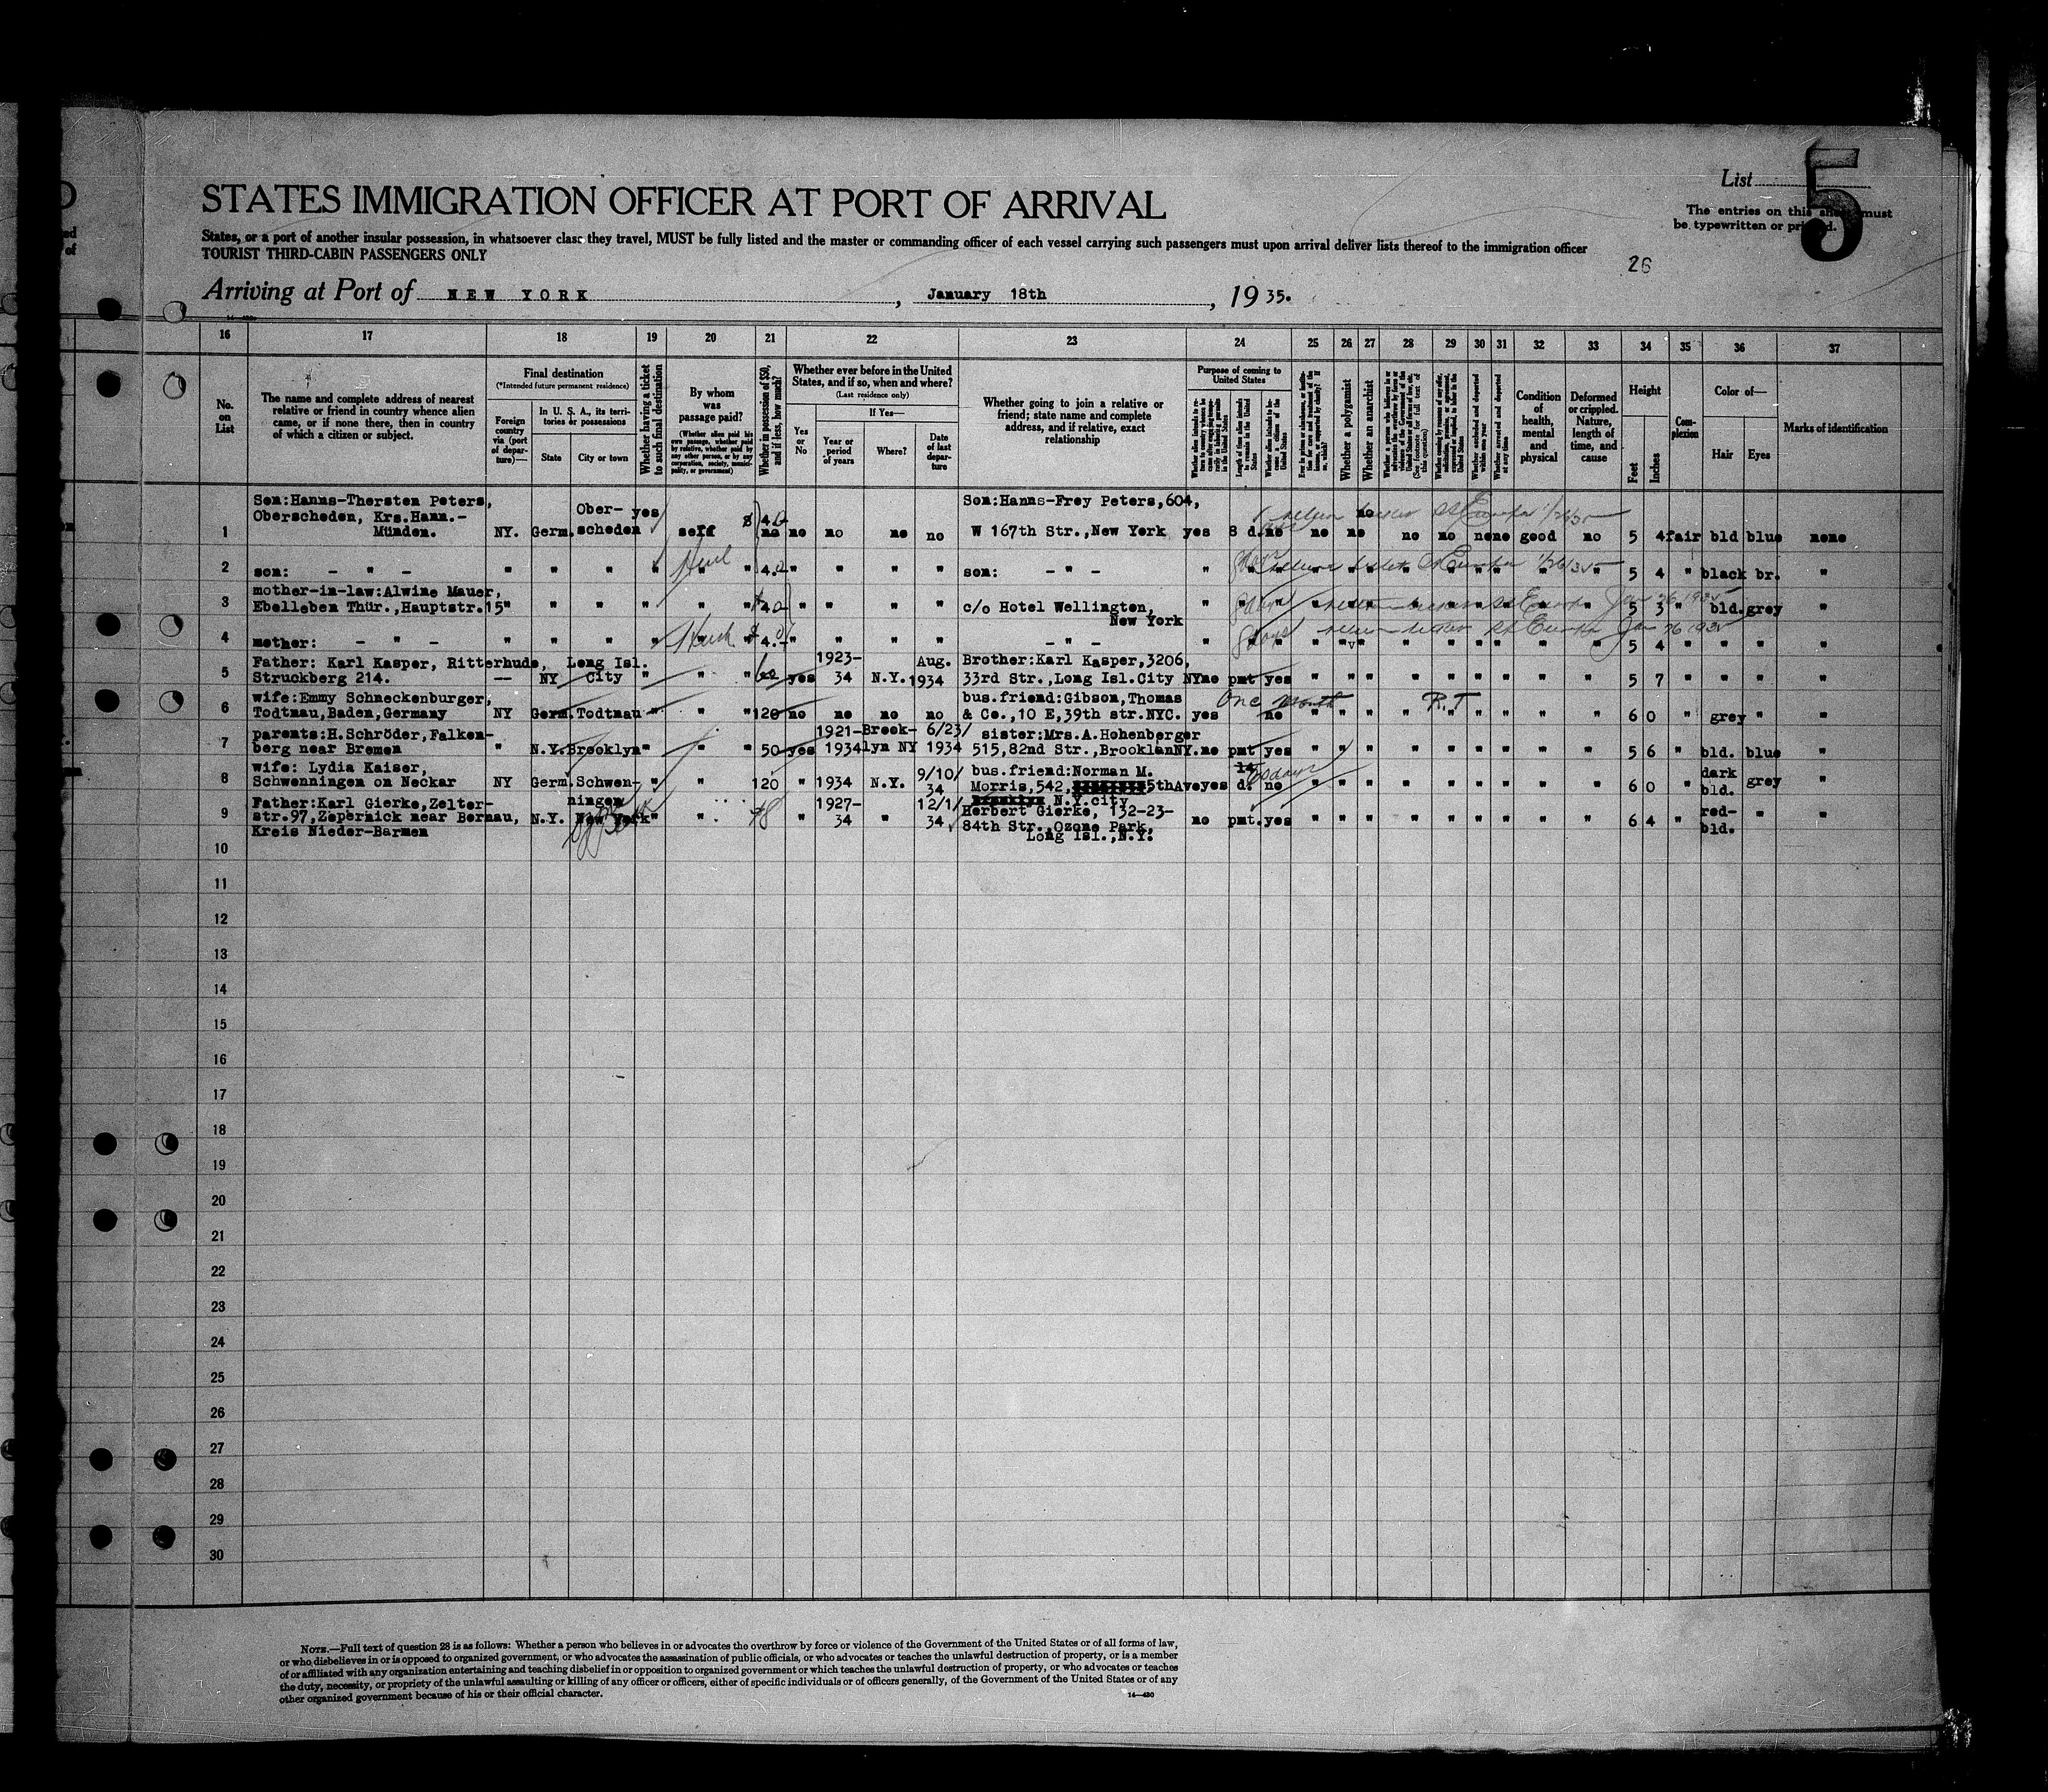 List 5
STATES IMMIGRATION OFFICER AT PORT OF ARRIVAL
The entries on this sheet must
be typewritten or printed.
States, or a port of another insular possession, in whatsoever class they travel, MUST be fully listed and the master or commanding officer of each vessel carrying such passengers must upon arrival deliver lists thereof to the immigration officer
TOURIST THIRD-CABIN PASSENGERS ONLY
26
Arriving at Port of NEW YORK, January 18th, 1935.
16 17 18 19 20 21 22 23 24 25 26 27 28 29 30 31 32 33 34 35 36 37
No. on List
The name and complete address of nearest
relative or friend in country whence alien
came, or if none there, then in country
of which a citizen or subject.
Final destination
(*Intended future permanent residence)
Foreign country via (port of departure)—
In U. S. A., its territories or possessions
State
City or town
Whether having a ticket to such final destination
By whom was passage paid?
(Whether alien paid his own passage, whether paid by relative, whether paid by any other person, or by any corporation, society, municipality, or government)
Whether in possession of $50, and if less, how much?
Whether ever before in the United
States, and if so, when and where?
(Last residence only)
Yes or No
If Yes—
Year or period of years
Where?
Date of last departure
Whether going to join a relative or
friend; state name and complete
address, and if relative, exact
relationship
Purpose of coming to United States
Length of time alien intends to remain in the United States
Whether a polygamist
Whether an anarchist
(See footnote for full text of this question)
Whether excluded and deported within one year
Whether arrested and deported at any time
Condition of health, mental and physical
Deformed or crippled. Nature, length of time, and cause
Height
Feet
Inches
Complexion
Color of—
Hair
Eyes
Marks of identification
1 Son:Hanns-Thorsten Peters, Oberscheden, Krs.Hann.-Münden. NY. Germ. Ober-scheden yes self $ 4.0 no no no no no Son:Hanns-Frey Peters,604, W 167th Str.,New York yes 8 d. no no no no no no none none good no 5 4 fair bld blue none
2 son: - " - " " " " " 4.0 " " " " son: - " - " " " " " " " " " " " " 5 4 " black br. "
3 mother-in-law:Alwine Mauer, Ebelleben Thür.,Hauptstr.15 " " " " " 40 " " " " c/o Hotel Wellington, New York " " " " " " " " " " " " 5 3 " bld. grey "
4 mother: - " - " " " " " 4.- " " " " - " - " 8 days " " " " " " " " " " 5 4 " " " "
5 Father: Karl Kasper, Ritterhude, Struckberg 214. — NY Long Isl. City " " " 60 yes 1923-34 N.Y. Aug. 1934 Brother:Karl Kasper,3206, 33rd Str.,Long Isl.City NY no pmt yes " " " " " " " " " 5 7 " " " "
6 wife:Emmy Schneckenburger, Todtnau,Baden,Germany NY Germ. Todtnau " " " 120 no no no no bus.friend:Gibson,Thomas & Co.,10 E,39th str.NYC. yes One month no " " " R.T " " " " " 6 0 " grey " "
7 parents:H.Schröder,Falken-berg near Bremen " N.Y. Brooklyn " " 50 yes 1921-1934 Brook-lyn NY 6/23/1934 sister:Mrs.A.Hohenberger 515,82nd Str.,BrooklanNY. no pmt yes " " " " " " " " " 5 6 " bld. blue "
8 wife: Lydia Kaiser, Schwenningen on Neckar NY Germ. Schwen-ningen " " 120 " 1934 N.Y. 9/10/34 bus.friend:Norman M. Morris,542, 5thAve N.Y.city yes 14 d. 60 days no " " " " " " " " " 6 0 " dark bld. grey "
9 Father:Karl Gierke,Zelter-str.97,Zepernick near Bernau, Kreis Nieder-Barmen N.Y. New York " " 48 " 1927-34 " 12/1/34 Herbert Gierke, 132-23-84th Str.,Ozone Park, Long Isl.,N.Y. no pmt. yes " " " " " " " " " 6 4 " red-bld. " "
10
11
12
13
14
15
16
17
18
19
20
21
22
23
24
25
26
27
28
29
30
NOTE.—Full text of question 28 is as follows: Whether a person who believes in or advocates the overthrow by force or violence of the Government of the United States or of all forms of law,
or who disbelieves in or is opposed to organized government, or who advocates the assassination of public officials, or who advocates or teaches the unlawful destruction of property, or is a member
of or affiliated with any organization entertaining and teaching disbelief in or opposition to organized government or which teaches the unlawful destruction of property, or who advocates or teaches
the duty, necessity, or propriety of the unlawful assaulting or killing of any officer or officers, either of specific individuals or of officers generally, of the Government of the United States or of any
other organized government because of his or their official character.
14—430